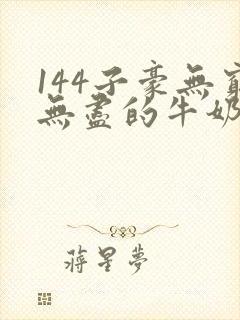 144子豪無窮
無盡的牛奶
蔣星夢